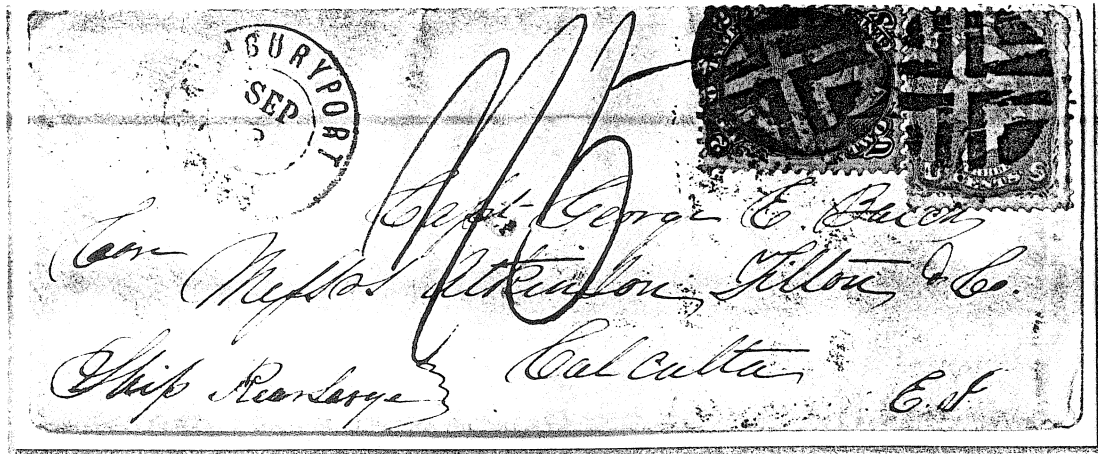 BURYPORT
SEP
CENTS
Capt. George E.
Care
Messrs Atkinson, Tilton, & Co.
Calcutta,
Ship Kearsarge
E. I